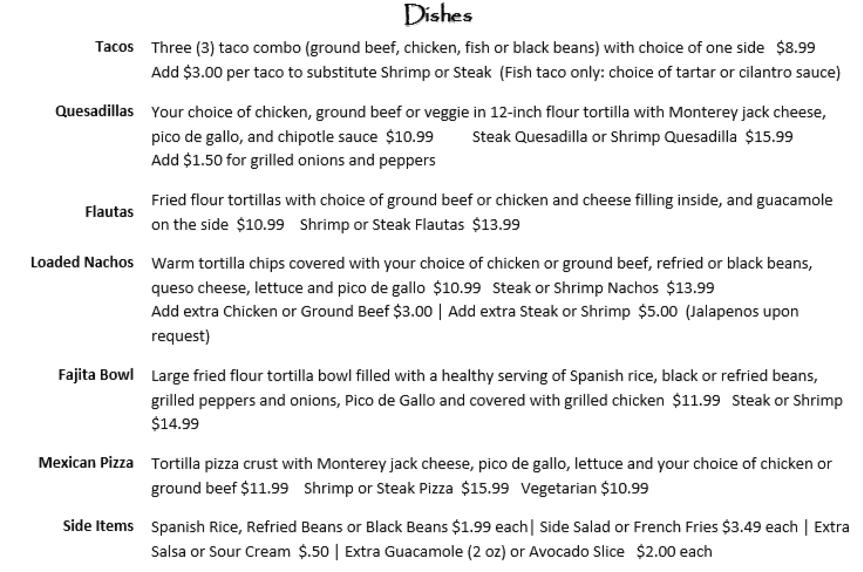 Dishes
Tacos Three (3) taco combo (ground beef, chicken, fish or black beans) with choice of one side $8.99
Add $3.00 per taco to substitute Shrimp or Steak (Fish taco only: choice of tartar or cilantro sauce)
Quesadillas Your choice of chicken, ground beef or veggie in 12-inch flour tortilla with Monterey jack cheese,
pico de gallo, and chipotle sauce $10.99 Steak Quesadilla or Shrimp Quesadilla $15.99
Add $1.50 for grilled onions and peppers
Flautas Fried flour tortillas with choice of ground beef or chicken and cheese filling inside, and guacamole
on the side $10.99 Shrimp or Steak Flautas $13.99
Loaded Nachos Warm tortilla chips covered with your choice of chicken or ground beef, refried or black beans,
queso cheese, lettuce and pico de gallo $10.99 Steak or Shrimp Nachos $13.99
Add extra Chicken or Ground Beef $3.00 | Add extra Steak or Shrimp $5.00 (Jalapenos upon
request)
Fajita Bowl Large fried flour tortilla bowl filled with a healthy serving of Spanish rice, black or refried beans,
grilled peppers and onions, Pico de Gallo and covered with grilled chicken $11.99 Steak or Shrimp
$14.99
Mexican Pizza Tortilla pizza crust with Monterey jack cheese, pico de gallo, lettuce and your choice of chicken or
ground beef $11.99 Shrimp or Steak Pizza $15.99 Vegetarian $10.99
Side Items Spanish Rice, Refried Beans or Black Beans $1.99 each| Side Salad or French Fries $3.49 each | Extra
Salsa or Sour Cream $.50 | Extra Guacamole (2 oz) or Avocado Slice $2.00 each